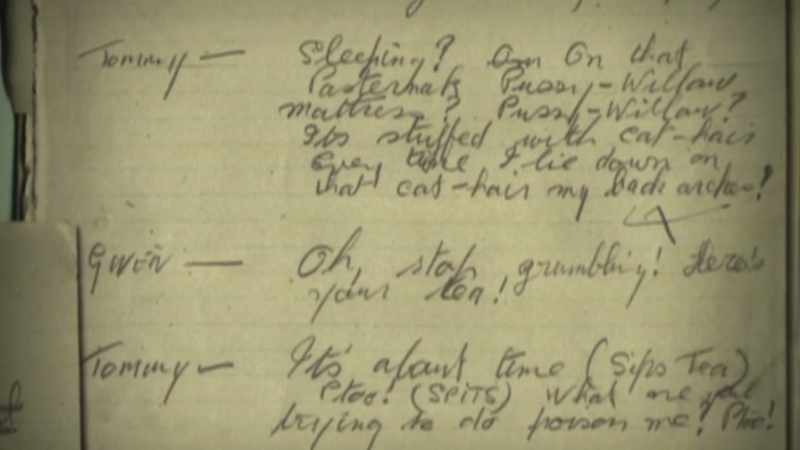 Tommy — Sleeping? Om On that
Pasternak Pussy-Willow
mattress? Pussy-Willow?
Its stuffed with cat-hair
Every time I lie down on
that cat-hair my back arches!
GWEN — Oh, stop grumbling! Here's
your tea!
Tommy — It's about time (Sips Tea)
Ptoo! (SPITS) What are you
trying to do poison me? Ptoo!